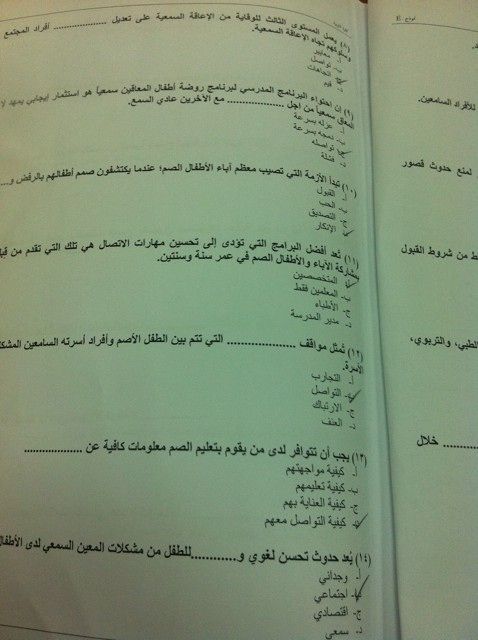 نموذج E
(٨) يعمل المستوى الثالث للوقاية من الإعاقة السمعية على تعديل .................. أفراد المجتمع
وسلوكهم تجاه الإعاقة السمعية.
أ- معايير
ب- تواصل
ج- اتجاهات
د- قيم
(٩) إن احتواء البرنامج المدرسي لبرنامج روضة أطفال المعاقين سمعياً هو استثمار إيجابي يمهد
المعاق سمعياً من أجل .................. مع الآخرين عادي السمع.
أ- عزله بسرعة
ب- دمجه بسرعة
ج- تواصله
د- فشله
(١٠) تبدأ الأزمة التي تصيب معظم آباء الأطفال الصم؛ عندما يكتشفون صمم أطفالهم بالرفض و...
أ- القبول
ب- الحب
ج- التصديق
د- الإنكار
(١١) تُعد أفضل البرامج التي تؤدى إلى تحسين مهارات الاتصال هي تلك التي تقدم من
بمشاركة الآباء والأطفال الصم في عمر سنة وسنتين.
أ- المتخصصين
ب- المعلمين فقط
ج- الأطباء
د- مدير المدرسة
(١٢) تُمثل مواقف .................. التي تتم بين الطفل الأصم وأفراد أسرته السامعين
الأسرة.
أ- التجارب
ب- التواصل
ج- الارتباك
د- العنف
(١٣) يجب أن تتوافر لدى من يقوم بتعليم الصم معلومات كافية عن ..................
أ- كيفية مواجهتهم
ب- كيفية تعليمهم
ج- كيفية العناية بهم
د- كيفية التواصل معهم
(١٤) يُعد حدوث تحسن لغوي و............للطفل من مشكلات المعين السمعي لدى
أ- وجداني
ب- اجتماعي
ج- اقتصادي
د- سمعي
للأفراد السامعين.
لمنع حدوث قصور
من شروط القبول
والتربوي،
.......... خلال